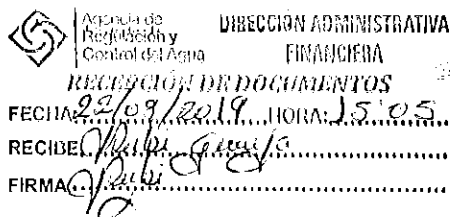 Agencia de
Regulación y
Control del Agua
DIRECCIÓN ADMINISTRATIVA
FINANCIERA
RECEPCIÓN DE DOCUMENTOS
FECHA /09/2019 HORA: 15:05
RECIBE
FIRMA